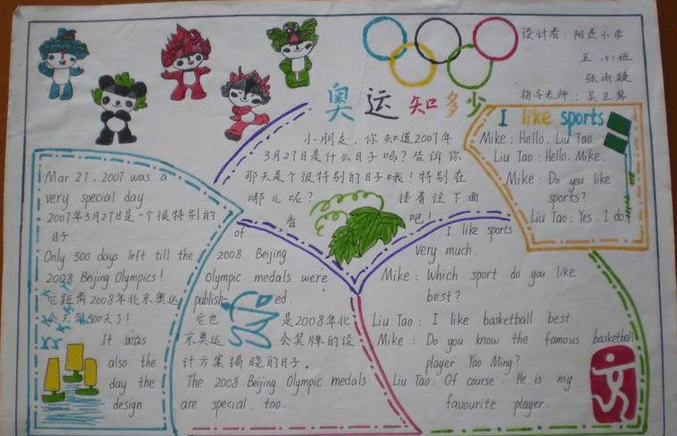 设计者：阳光小学
五（5）班
张雨婕
指导老师：吴卫琴
奥运知多少
小朋友，你知道2007年
3月27日是什么日子吗？告诉你
那天是个很特别的日子哦！特别在
哪儿呢？接着往下面
看吧！
Mar 27, 2007 was a
very special day.
2007年3月27日是一个很特别的
日子.
Only 500 days left till the
2008 Beijing Olympics!
它距离2008年北京奥运
会只有500天了！
It was
also the
day the
design
of
2008 Beijing
Olympic medals were
published.
它也是2008年北
京奥运会奖牌的设
计方案揭晓的日子.
The 2008 Beijing Olympic medals
are special, too.
I like sports
Mike: Hello, Liu Tao.
Liu Tao: Hello, Mike.
Mike: Do you like
sports?
Liu Tao: Yes, I do
I like sports
very much.
Mike: Which sport do you like
best?
Liu Tao: I like basketball best.
Mike: Do you know the famous basketball
player Yao Ming?
Liu Tao: Of course. He is my
favourite player.